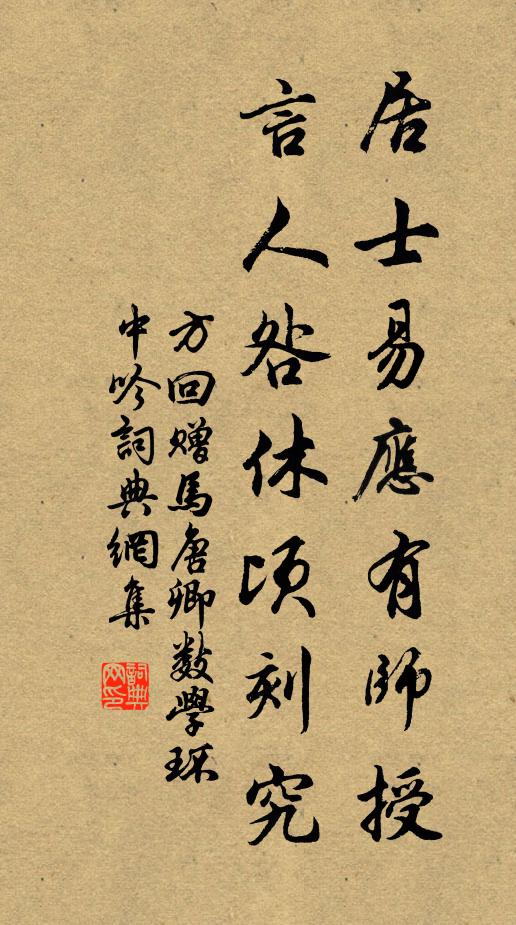 居士易應有師授
言人咎休頃刻究
方回贈馬唐卿数學環
中吟詞典網集
詞典網印